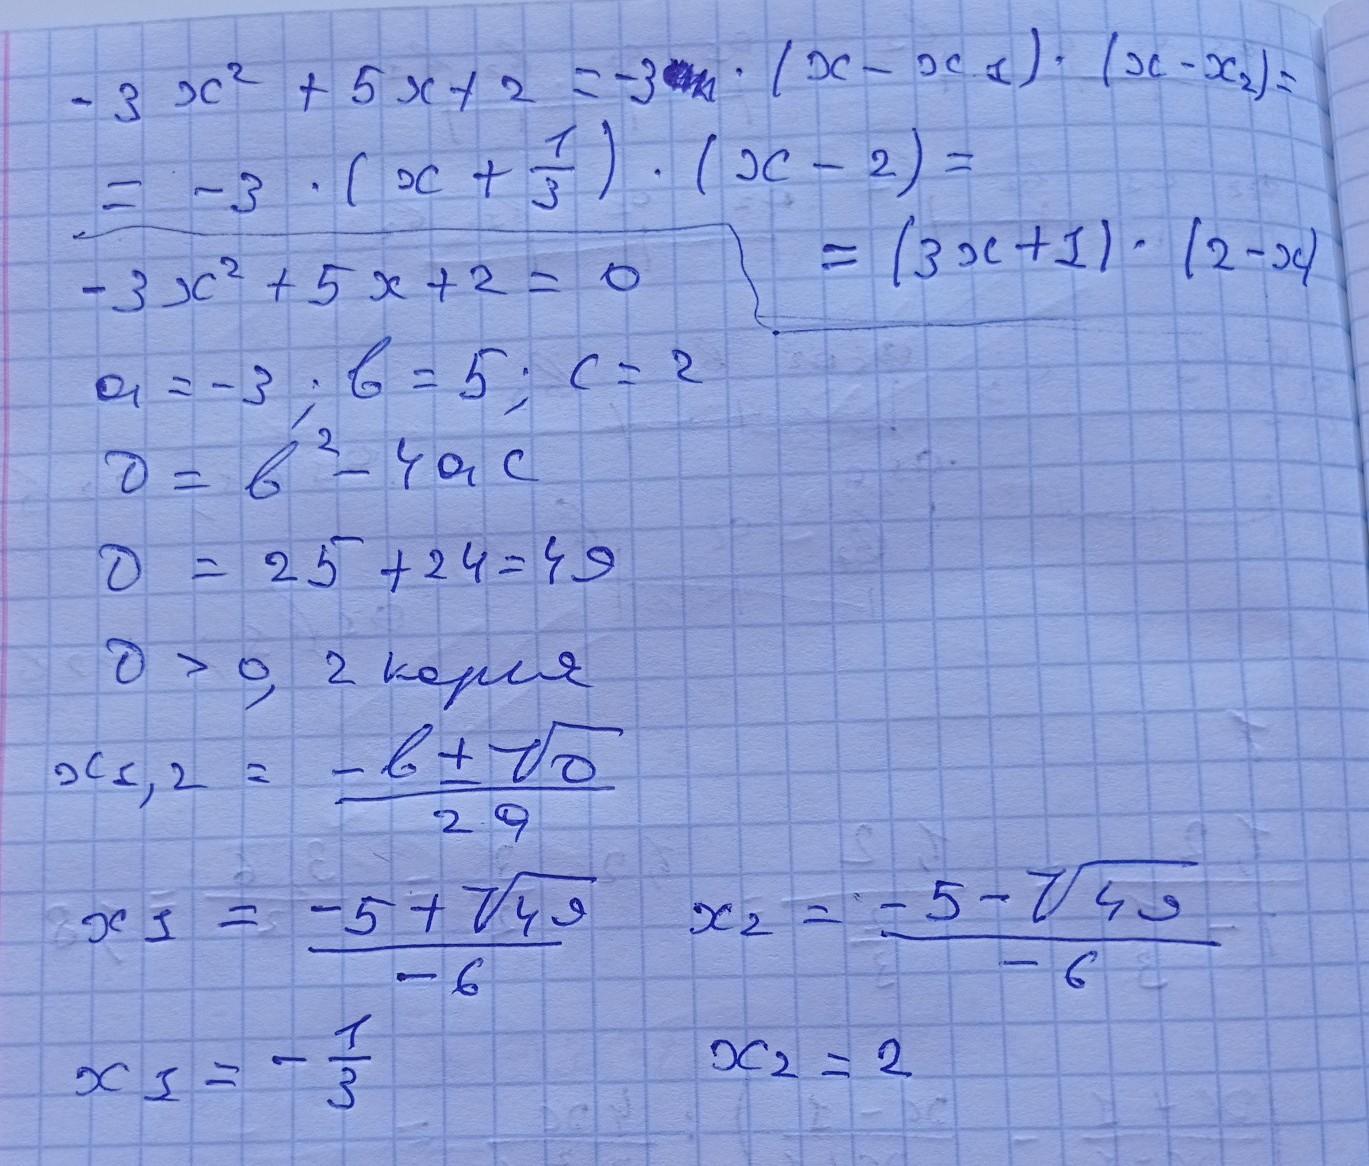 -3x² + 5x + 2 = -3 · (x - x₁) · (x - x₂) =
= -3 · (x + 1/3) · (x - 2) =
= (3x + 1) · (2 - x)
-3x² + 5x + 2 = 0
a = -3; b = 5; c = 2
D = b² - 4ac
D = 25 + 24 = 49
D > 0, 2 корня
x₁,₂ = (-b ± √D) / 2a
x₁ = (-5 + √49) / -6
x₂ = (-5 - √49) / -6
x₁ = -1/3
x₂ = 2